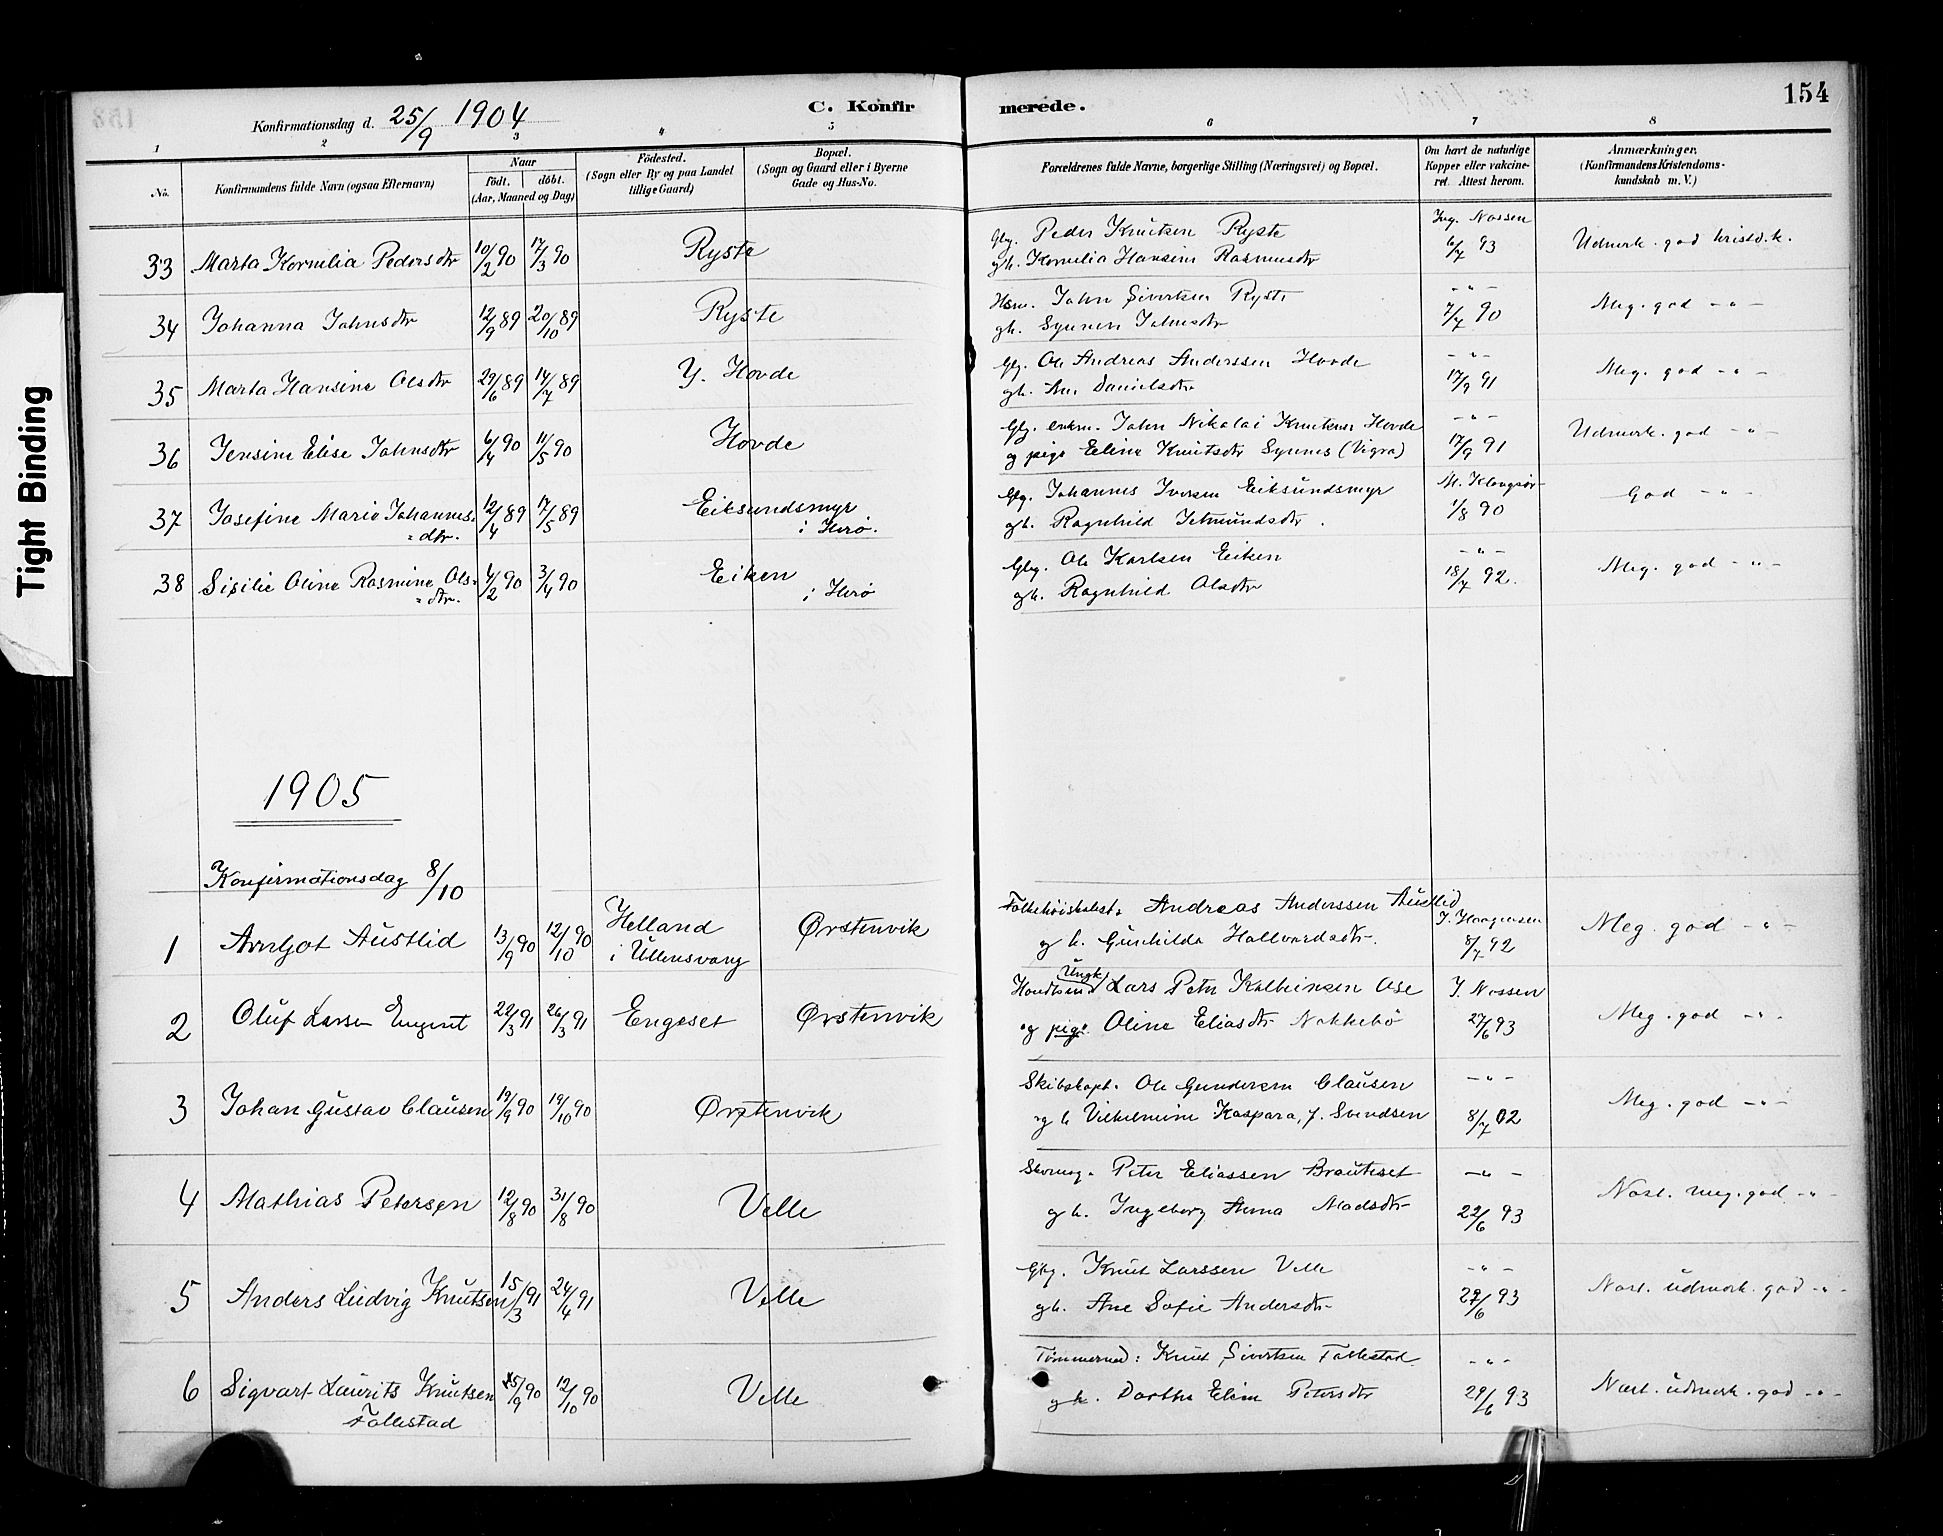 154
C. Konfirmerede.
Konfirmationsdag d. 25/9 1904
1 2 3 4 5 6 7 8
No.
Konfirmandens fulde Navn (ogsaa Efternavn)
Naar
født. døbt.
(Aar, Maaned og Dag)
Fødested.
(Sogn eller By og paa Landet
tillige Gaard)
Bopæl.
(Sogn og Gaard eller i Byerne
Gade og Hus-No.
Forældrenes fulde Navne, borgerlige Stilling (Næringsvei) og Bopæl.
Om havt de naturlige
Kopper eller vakcine-
ret. Attest herom.
Anmærkninger.
(Konfirmandens Kristendoms-
kundskab m. V.)
33 Marta Kornelia Pedersdtr 10/2 90 17/3 90 Ryste Gbg. Peder Knutsen Ryste Ing. Nossen
gh. Kornelia Hansine Rasmusdtr 6/7 93 Udmerk. god kristd.k.
34 Johanna Johnsdtr 12/9 89 20/10 89 Ryste Hsm. John Sivertsen Ryste -"-
gh. Synnen Johnsdtr 7/7 90 Meg. god -"-
35 Marta Hansine Olsdtr 29/6 89 14/7 89 Y. Hovde Gbg. Ole Andreas Anderssen Hovde -"-
gh. Ane Danielsdtr 17/9 91 Meg. god -"-
36 Jensine Elise Johnsdtr 6/4 90 11/5 90 Hovde Gbg. enkm. John Nikolai Knutsen Hovde -"-
og pige Eline Knutsdtr Synnes (Vigra) 17/9 91 Udmerk. god -"-
37 Josefine Marie Johannes= 12/4 89 17/5 89 Eiksundsmyr Gbg. Johannes Iversen Eiksundsmyr
=dtr. i Herø. gh. Ragnhild Jetmundsdtr. 1/8 90 God -"-
38 Sisilie Oline Rasmine Ols= 4/2 90 3/4 90 Eiken Gbg. Ole Karlsen Eiken -"-
=dtr. i Herø gh. Ragnhild Olsdtr 18/7 92. Meg. god -"-
1905
Konfirmationsdag 8/10
1 Arnljot Austlid 13/9 90 12/10 90 Helland Ørstenvik Andreas Anderssen Austlid
i Ullensvang g h. Gunhilda Hallvardsdtr. J. Haagensen 8/7 92 Meg. god -"-
Ungk.
2 Oluf Larsen Engeset 22/3 91 26/3 91 Engeset Ørstenvik Lars Peter Ose J. Nossen
og pige Oline Eliasdtr Nekkebø 27/6 93 Meg. god -"-
3 Johan Gustav Clausen 19/9 90 19/10 90 Ørstenvik Skibskapt. Ole Gundersen Clausen -"-
og h Vilhelmine Kaspara, f. Svendsen 8/7 02 Meg. god -"-
4 Mathias Petersen 12/8 90 31/8 90 Velle Skomag. Peter Eliassen Brauteset -"-
g h. Ingeborg Anna Madsdtr 22/6 93 Nost. meg. god -"-
5 Anders Ludvig Knutsen 15/3 91 24/4 91 Velle Gbg. Knut Larssen Velle -"-
gh. Ane Sofie Andersdtr 29/6 93 Nost. udmerk. god -"-
6 Sigvart Laurits Knutsen 25/9 90 12/10 90 Velle Tømmermd: Knut Sivertsen Follestad -"-
Follestad gh. Dorthe Eline Petersdtr 29/6 93 Nost. udmerk. god -"-
Tight Binding